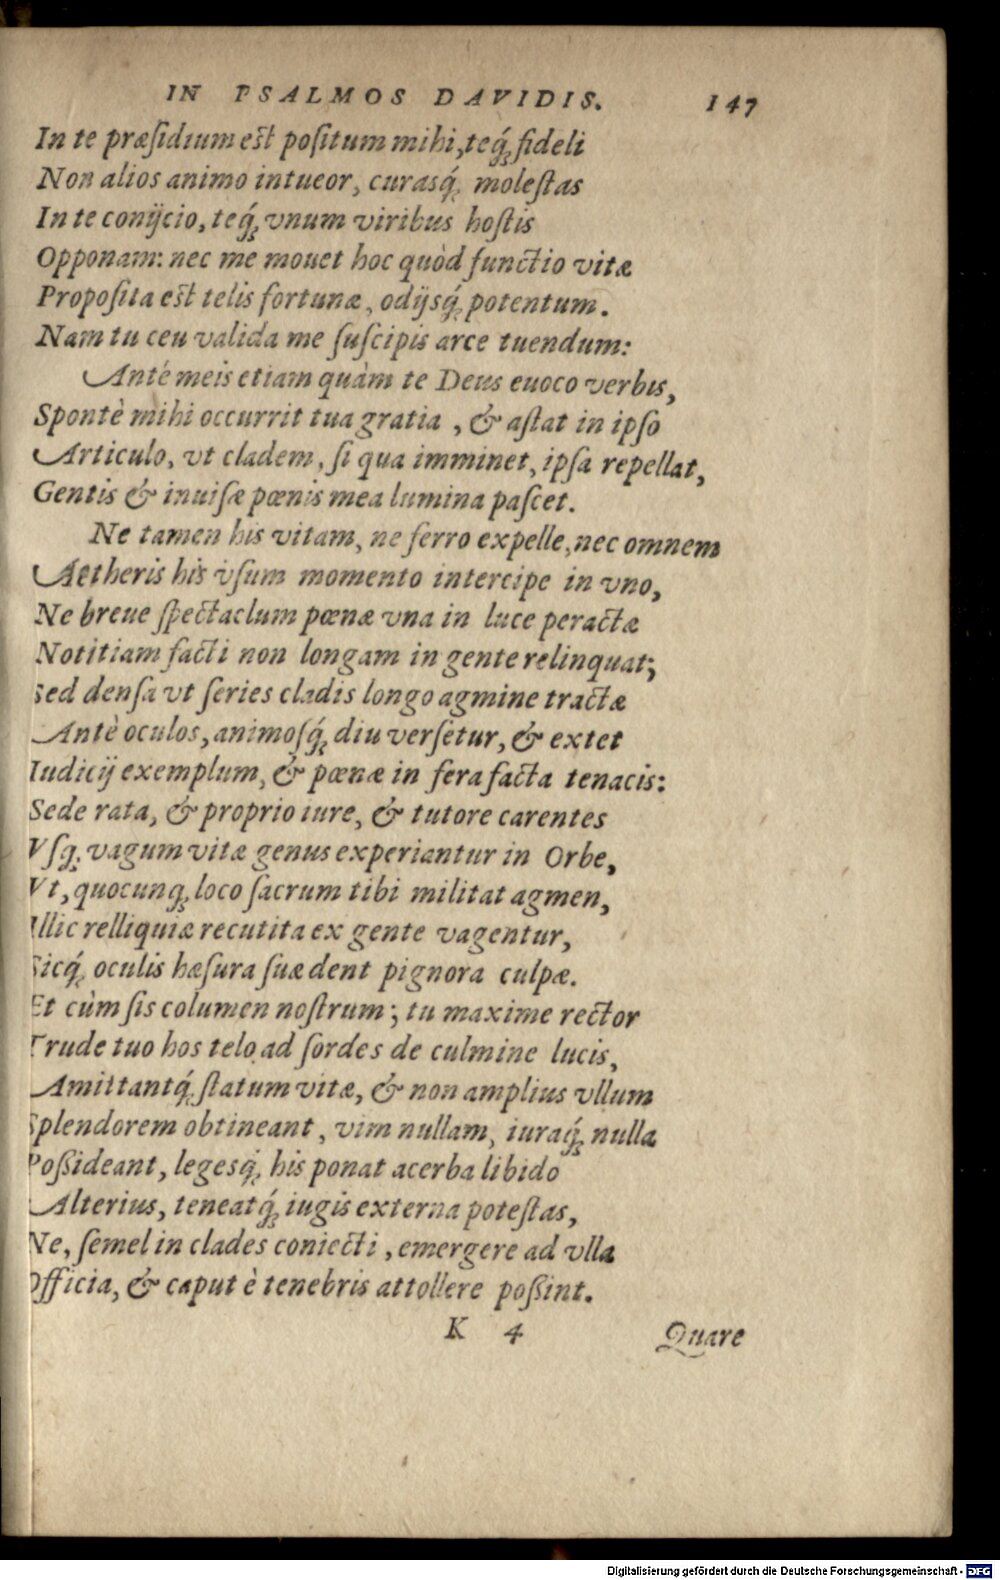 IN PSALMOS DAVIDIS. 147
In te præsidium est positum mihi, teq́ue fideli
Non alios animo intueor, curasq́ue molestas
In te conijcio, teq́ue vnum viribus hostis
Opponam: nec me mouet hoc quòd functio vitæ
Proposita est telis fortunæ, odijsq́ue potentum.
Nam tu ceu valida me suscipis arce tuendum:
Antè meis etiam quàm te Deus euoco verbis,
Spontè mihi occurrit tua gratia, & astat in ipso
Articulo, vt cladem, si qua imminet, ipsa repellat,
Gentis & inuisæ pœnis mea lumina pascet.
Ne tamen his vitam, ne ferro expelle, nec omnem
Aetheris his vsum momento intercipe in vno,
Ne breue spectaclum pœnæ vna in luce peractæ
Notitiam facti non longam in gente relinquat;
Sed densa vt series cladis longo agmine tractæ
Antè oculos, animosq́ue diu versetur, & extet
Iudicij exemplum, & pœnæ in fera facta tenacis:
Sede rata, & proprio iure, & tutore carentes
Vsq́ue vagum vitæ genus experiantur in Orbe,
Vt, quocunq́ue loco sacrum tibi militat agmen,
Illic relliquiæ recutita ex gente vagentur,
Sicq́ue oculis hæsura suæ dent pignora culpæ.
Et cùm sis columen nostrum; tu maxime rector
Trude tuo hos telo ad sordes de culmine lucis,
Amittantq́ue statum vitæ, & non amplius vllum
Splendorem obtineant, vim nullam, iuraq́ue nulla
Possideant, legesq́ue his ponat acerba libido
Alterius, teneatq́ue iugis externa potestas,
Ne, semel in clades coniecti, emergere ad vlla
Officia, & caput è tenebris attollere possint.
K 4 Quare
Digitalisierung gefördert durch die Deutsche Forschungsgemeinschaft - DFG